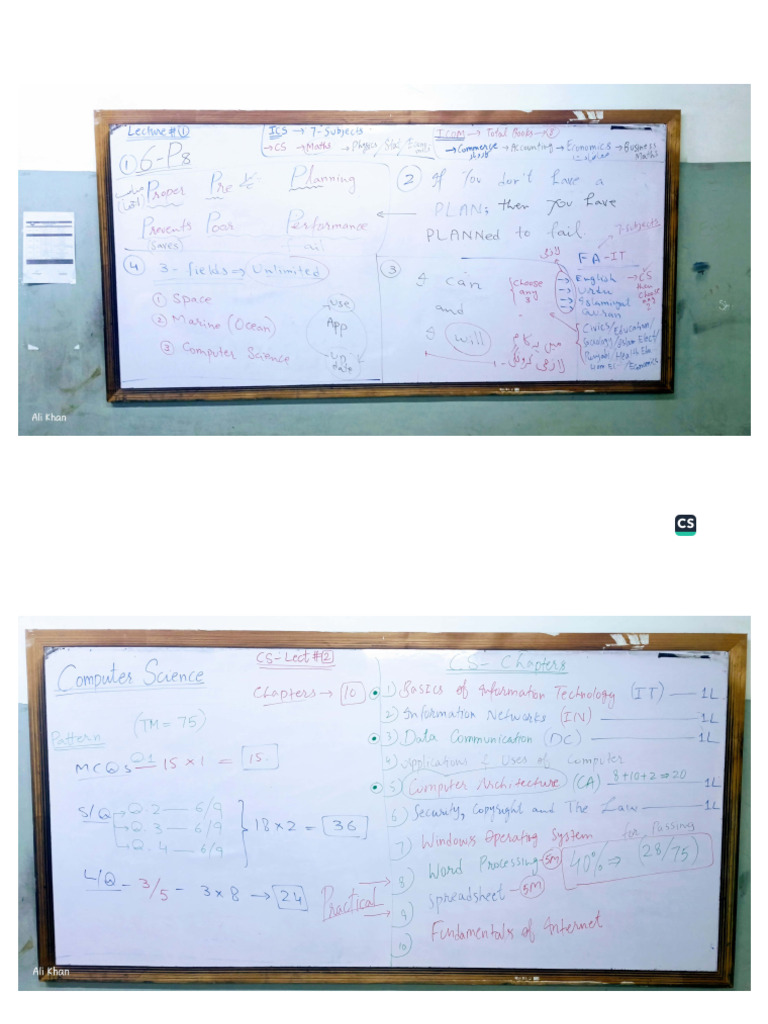 Lecture #①
ICS → 7-Subjects
→CS →Maths →Physics/Stat/Econ
ICOM → Total Books → 8
→Commerce →Accounting →Economics →Business Maths
① 6-P8
Proper Pre Planning
Prevents Poor Performance
(Saves)
② If You don't have a
PLAN; then you have
PLANNed to fail.
7-Subjects
FA-IT
③ I can
and
I will
میں یہ کام
لازمی کروں گا
لازمی
(choose any 3
→ English
→ Urdu
→ Islamiyat
Quran
→CS
then
choose
any
2
Civics/Education/
Sociology/Islam Elect/
Punjabi/Health
/Economics
④ 3-fields ⇒ Unlimited
① Space
② Marine (Ocean)
③ Computer Science
use
App
update
Ali Khan
CS
Computer Science
CS-Lect #②
Chapters → 10
Pattern (TM = 75)
MCQs Q1 15 × 1 = 15
S/Q → Q.2 — 6/9
→ Q.3 — 6/9
→ Q.4 — 6/9
18 × 2 = 36
L/Q - 3/5 - 3 × 8 → 24
Practical
CS- Chapters
1) Basics of Information Technology (IT) — 1L
2) Information Networks (IN) — 1L
3) Data Communication (DC) — 1L
4) Applications & Uses of Computer
5) Computer Architecture (CA) 8+10+2 ⇒ 20 1L
6) Security, Copyright and The Law — 1L
7) Windows Operating System
8) Word Processing - 5M
9) Spreadsheet - 5M
10) Fundamentals of Internet
for Passing
40% ⇒ (28/75)
Ali Khan